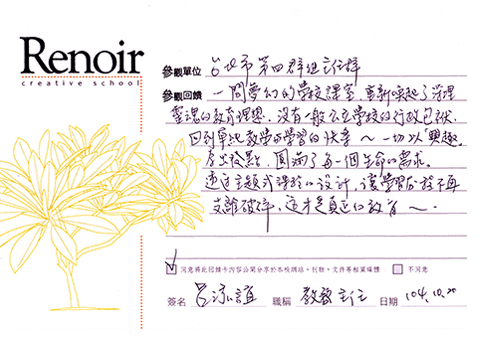 Renoir
creative school
參觀單位 台北市第四群組主任群
參觀回饋 一間夢幻的學校課室,重新喚起了深埋
靈魂的教育理想,沒有一般公立學校的行政包袱,
回到單純教學與學習的快意~一切以"興趣"
為出發點,圓滿了每一個生命的需求。
透過主題式課程的設計,讓學習不再
支離破碎,這才是真正的教育~.
同意將此回饋卡內容公開分享於本校網站、刊物、文件等相關媒體 不同意
簽名 職稱 教務主任 日期 104.10.20